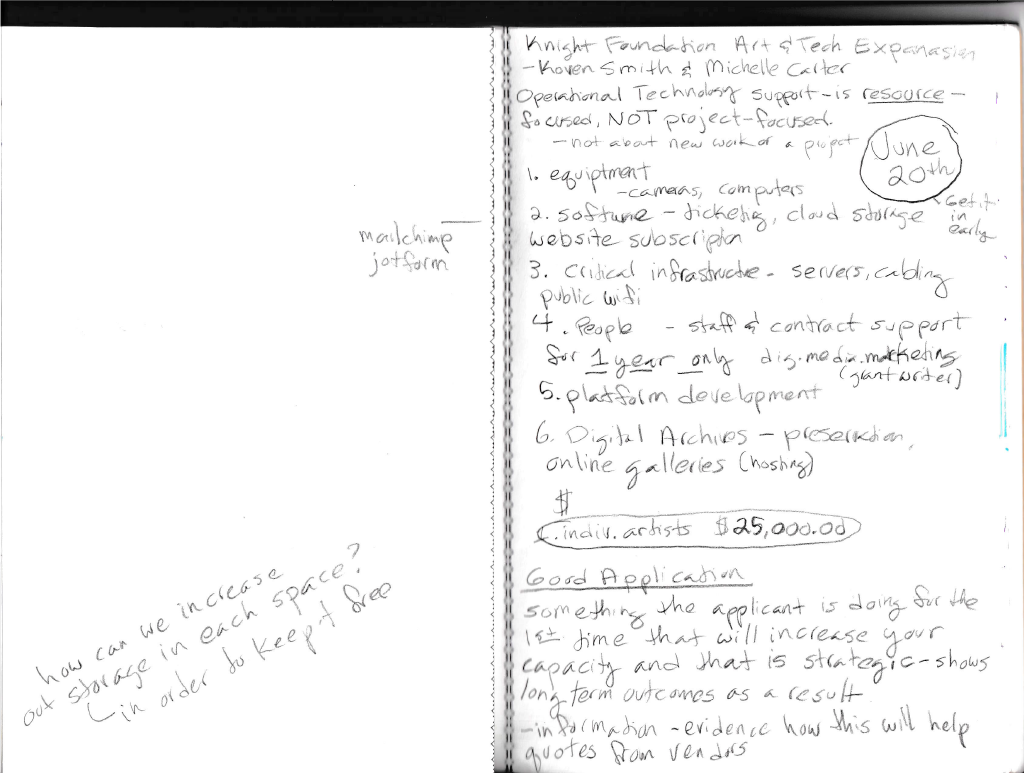 mailchimp
jotform
how can we increase
out storage in each space?
in order to keep it free
Knight Foundation Art & Tech Expanasion
- Koven Smith & Michelle Carter
Operational Technology support - is resource -
focused, NOT project-focused.
- not about new work or a project
June
20th
Get it
in
early
1. equiptment
- cameras, computers
2. software - ticketing, cloud storage
website subscription
3. critical infrastructure - servers, cabling
public wifi
4. People - staff & contract support
for 1 year only dig. media. marketing
(grant writer)
5. platform development
6. Digital Archives - preservation,
online galleries (hosting)
$
1. indiv. artists $25,000.00
Good Application
something the applicant is doing for the
1st time that will increase your
capacity and that is strategic - shows
long term outcomes as a result
- information - evidence how this will help
quotes from vendors